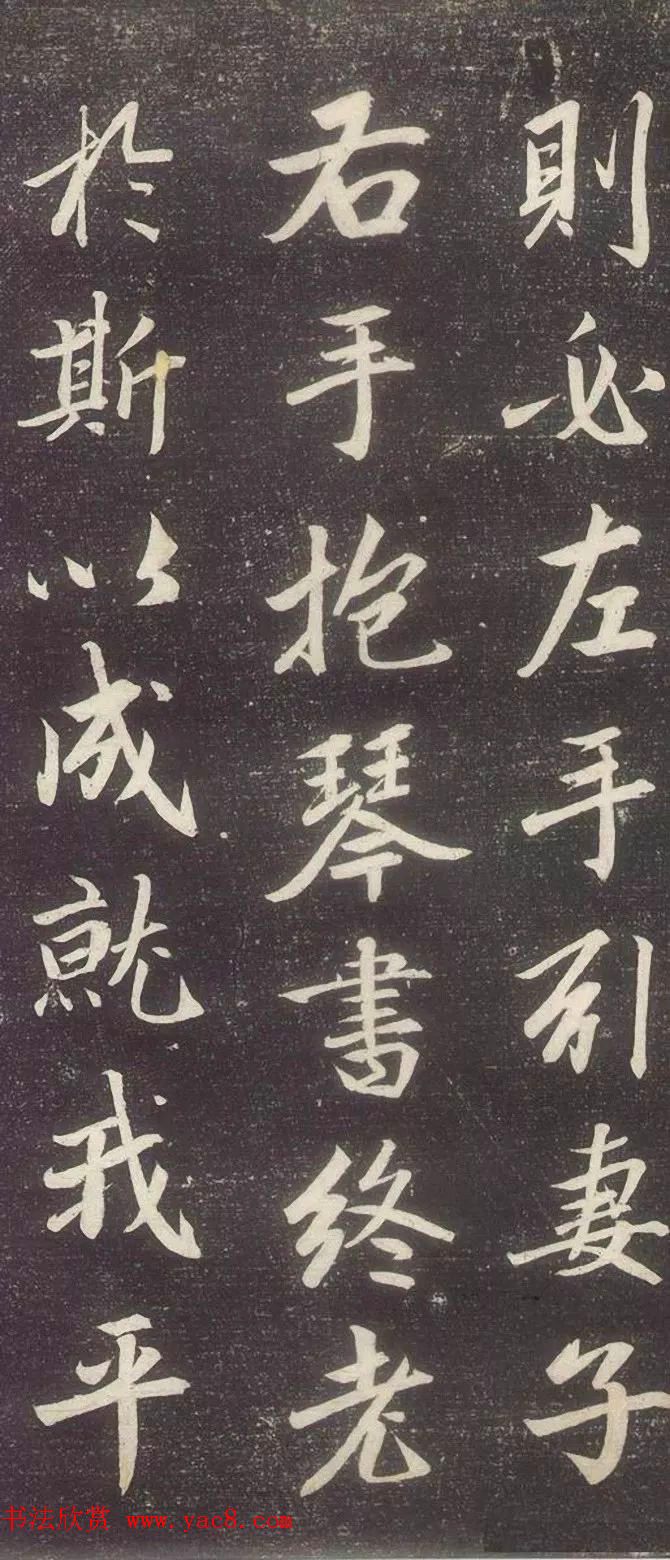 則必左手引妻子
右手抱琴書終老
於斯以成就我平
书法欣赏 www.yac8.com